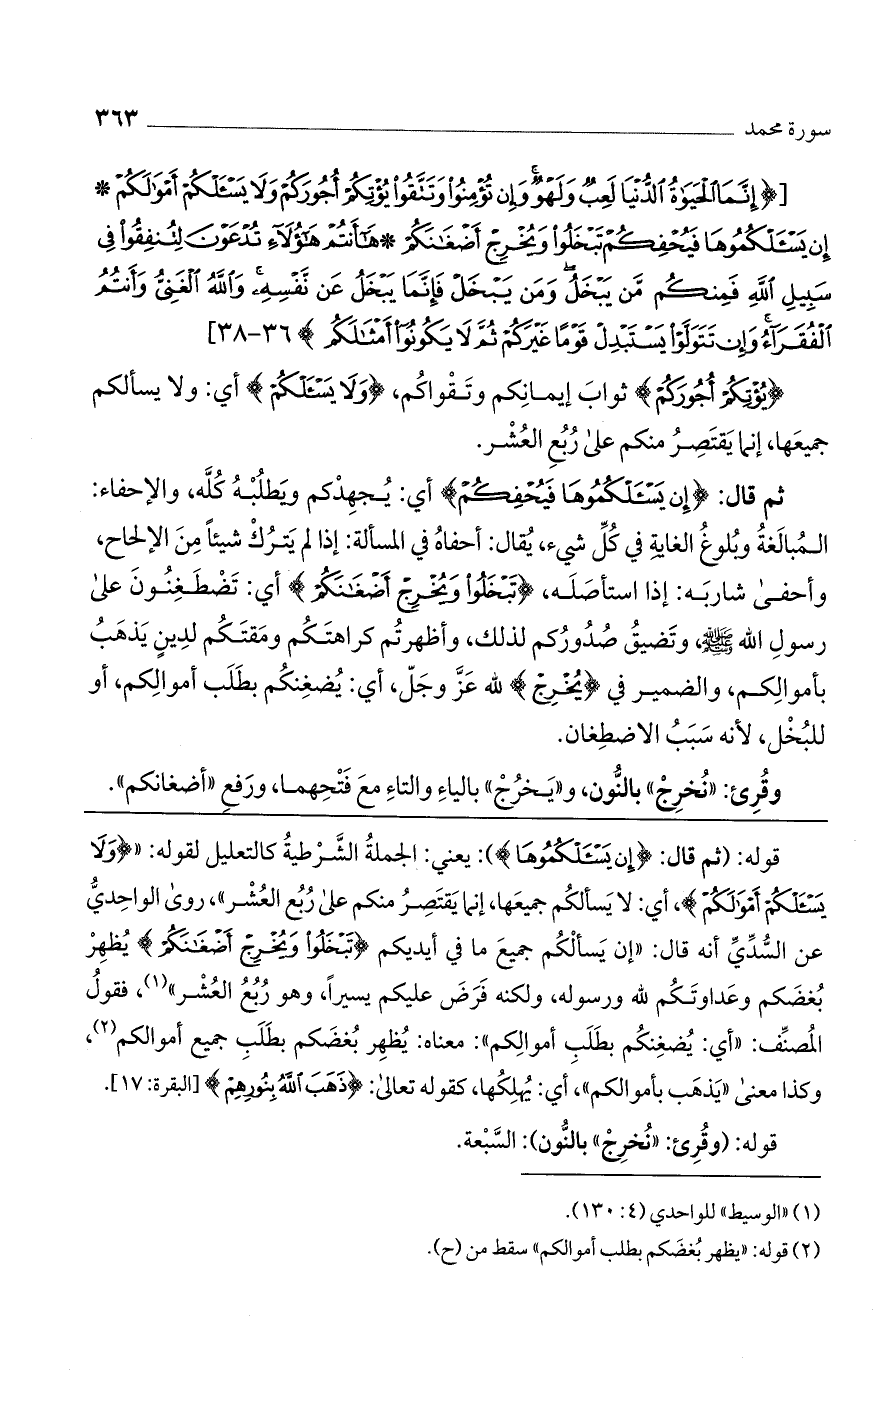 سورة محمد ٣٦٣
[﴿إِنَّمَا ٱلْحَيَوٰةُ ٱلدُّنْيَا لَعِبٌ وَلَهْوٌ ۚ وَإِن تُؤْمِنُوا۟ وَتَتَّقُوا۟ يُؤْتِكُمْ أُجُورَكُمْ وَلَا يَسْـَٔلْكُمْ أَمْوَٰلَكُمْ *
إِن يَسْـَٔلْكُمُوهَا فَيُحْفِكُمْ تَبْخَلُوا۟ وَيُخْرِجْ أَضْغَـٰنَكُمْ * هَـٰٓأَنتُمْ هَـٰٓؤُلَآءِ تُدْعَوْنَ لِتُنفِقُوا۟ فِى
سَبِيلِ ٱللَّهِ فَمِنكُم مَّن يَبْخَلُ ۖ وَمَن يَبْخَلْ فَإِنَّمَا يَبْخَلُ عَن نَّفْسِهِۦ ۚ وَٱللَّهُ ٱلْغَنِىُّ وَأَنتُمُ
ٱلْفُقَرَآءُ ۚ وَإِن تَتَوَلَّوْا۟ يَسْتَبْدِلْ قَوْمًا غَيْرَكُمْ ثُمَّ لَا يَكُونُوٓا۟ أَمْثَـٰلَكُم﴾ ٣٦-٣٨]
﴿يُؤْتِكُمْ أُجُورَكُمْ﴾ ثوابَ إيمانِكم وتَقْواكُم، ﴿وَلَا يَسْـَٔلْكُمْ﴾ أي: ولا يسألكم
جميعَها، إنما يَقتَصِرُ منكم علىٰ رُبُعِ العُشْر.
ثم قال: ﴿إِن يَسْـَٔلْكُمُوهَا فَيُحْفِكُمْ﴾ أي: يُجهِدْكم ويَطلُبْهُ كُلَّه، والإحفاء:
المُبالَغةُ وبُلوغُ الغايةِ في كُلِّ شيء، يُقال: أحفاهُ في المسألة: إذا لم يَترُكْ شيئاً مِنَ الإلحاح،
وأحفىٰ شاربَه: إذا استأصَلَه، ﴿تَبْخَلُوا۟ وَيُخْرِجْ أَضْغَـٰنَكُمْ﴾ أي: تَضْطَغِنُونَ علىٰ
رسولِ الله ﷺ، وتَضيقُ صُدُورُكم لذلك، وأظهرتُم كراهتَكُم ومَقتَكُم لدِينٍ يَذهَبُ
بأموالِكم، والضمير في ﴿يُخْرِجْ﴾ لله عَزَّ وجَلّ، أي: يُضغِنكُم بطَلَب أموالِكم، أو
للبُخْل، لأنه سَبَبُ الاضطِغان.
وقُرِئ: «نُخرِجْ» بالنُّون، و«يَخرُجْ» بالياءِ والتاءِ معَ فَتْحِهما، ورَفعِ «أضغانكم».
قوله: (ثم قال: ﴿إِن يَسْـَٔلْكُمُوهَا﴾): يعني: الجملةُ الشَّرْطيةُ كالتعليل لقوله: «﴿وَلَا
يَسْـَٔلْكُمْ أَمْوَٰلَكُمْ﴾، أي: لا يَسألكُم جميعَها، إنما يَقتَصِرُ منكم علىٰ رُبُعِ العُشْر»، روىٰ الواحِديُّ
عن السُّدِّيِّ أنه قال: «إن يَسألْكُم جميعَ ما في أيديكم ﴿تَبْخَلُوا۟ وَيُخْرِجْ أَضْغَـٰنَكُمْ﴾ يُظهِرْ
بُغضَكم وعَداوتَكُم لله ورسوله، ولكنه فَرَضَ عليكم يسيراً، وهو رُبُعُ العُشْر»(١)، فقولُ
المُصنِّف: «أي: يُضغِنكُم بطَلَبِ أموالِكم»: معناه: يُظهِر بُغضَكم بطَلَبِ جميع أموالكم(٢)،
وكذا معنىٰ «يَذهَب بأموالكم»، أي: يُهلِكُها، كقوله تعالىٰ: ﴿ذَهَبَ ٱللَّهُ بِنُورِهِمْ﴾ [البقرة: ١٧].
قوله: (وقُرِئ: «نُخرِجْ» بالنُّون): السَّبْعة.
(١) «الوسيط» للواحدي (٤: ١٣٠).
(٢) قوله: «يظهر بُغضَكم بطلب أموالكم» سقط من (ح).